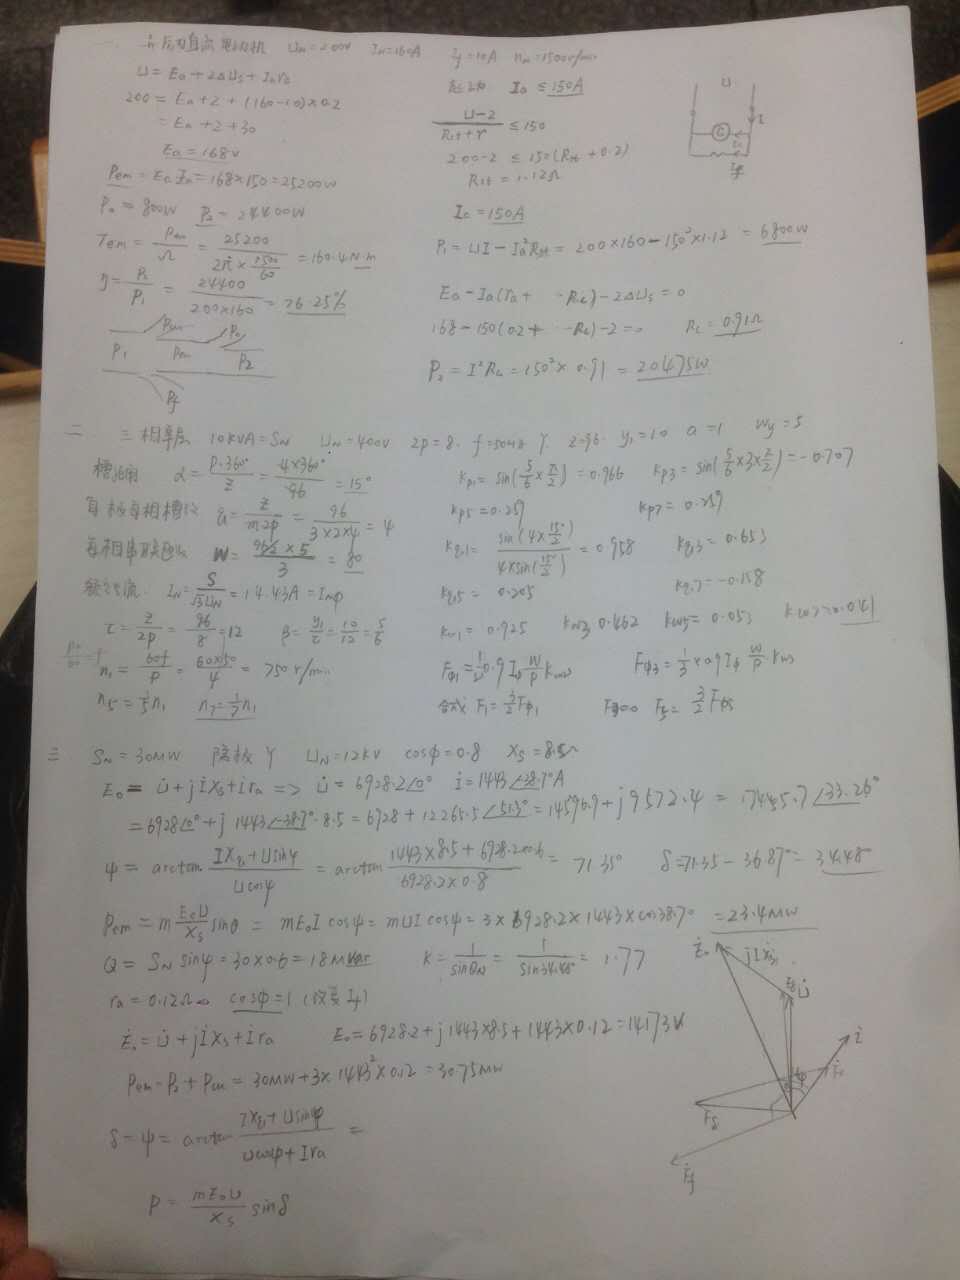 一 并励直流电动机 UN=200V IN=160A If=10A nN=1500r/min
U=Ea+2ΔUs+Iara
200=Ea+2+(160-10)×0.2
=Ea+2+30
Ea=168V
Pem=EaIa=168×150=25200W
P0=800W P2=24400W
Tem=Pem/Ω=25200/(2π×1500/60)=160.4N·m
η=P2/P1=24400/(200×160)=76.25%
P1 Pcu Pem P0 P2
Pf
起动 Ia≤150A
(U-2)/(Rst+r)≤150
200-2≤150(Rst+0.2)
Rst=1.12Ω
Ia=150A
P1=UI-Ia²Rst=200×160-150²×1.12=6800W
Ea-Ia(ra+ -RL)-2ΔUs=0
168-150(0.2+ -RL)-2=0 RL=0.91Ω
P2=I²RL=150²×0.91=20475W
U
I
G
Ia
If
二 三相单层 10KVA=SN UN=400V 2p=8. f=50Hz Y z=96. y1=10 a=1 wy=5
槽距角 α=p·360°/z=4×360°/96=15°
每极每相槽数 q=z/m2p=96/(3×2×4)=4
每相串联匝数 W= ×5/3=80
额定电流 IN=S/√3UN=14.43A=INφ
τ=z/2p=96/8=12 β=y1/τ=10/12=5/6
n1=60f/p=60×50/4=750r/min
n5=1/5n1 n7=1/7n1
Kp1=sin(5/6×π/2)=0.966 Kp3=sin(5/6×3×π/2)=-0.707
Kp5=0.259 Kp7=0.259
Kq1=sin(4×15°/2)/4×sin(15°/2)=0.958 Kq3=0.653
Kq5=0.205 Kq7=-0.158
Kw1=0.925 Kw3 0.462 Kw5=0.053 Kw7=0.041
Fφ1=0.9Iφ W/P Kw1 Fφ3=1/3×0.9Iφ W/P Kw3
合成 F1=3/2Fφ1 F3=0 F5=3/2Fφ5
三 SN=30MW 隐极Y UN=12KV cosφ=0.8 Xs=8.5Ω
E0=U̇+jİXs+İra => U̇=6928.2∠0° İ=1443∠-38.7°A
=6928∠0°+j1443∠-38.7°·8.5=6928+12265.5∠51.3°=14596.9+j9572.4=17445.7∠33.26°
ψ=arctan (IXs+Usinφ)/Ucosφ=arctan (1443×8.5+6928.2×0.6)/(6928.2×0.8)=71.35° δ=71.35-36.87°=34.48°
Pem=m E0U/Xs sinθ=mE0Icosψ=mUIcosφ=3×6928.2×1443×cos38.7°=23.4MW
Q=SNsinφ=30×0.6=18MVar K=1/sinθN=1/sin34.48°=1.77
ra=0.12Ω cosφ=1
Ė0=U̇+jİXs+İra E0=6928.2+j1443×8.5+1443×0.12=14173V
Pem=P2+Pcu=30MW+3×1443²×0.12=30.75MW
δ=ψ=arctan (IXs+Usinφ)/(Ucosφ+Ira)=
P=mE0U/Xs sinδ
Ė0 jİXs
U̇
İ
φ
Fδ
Ḟf